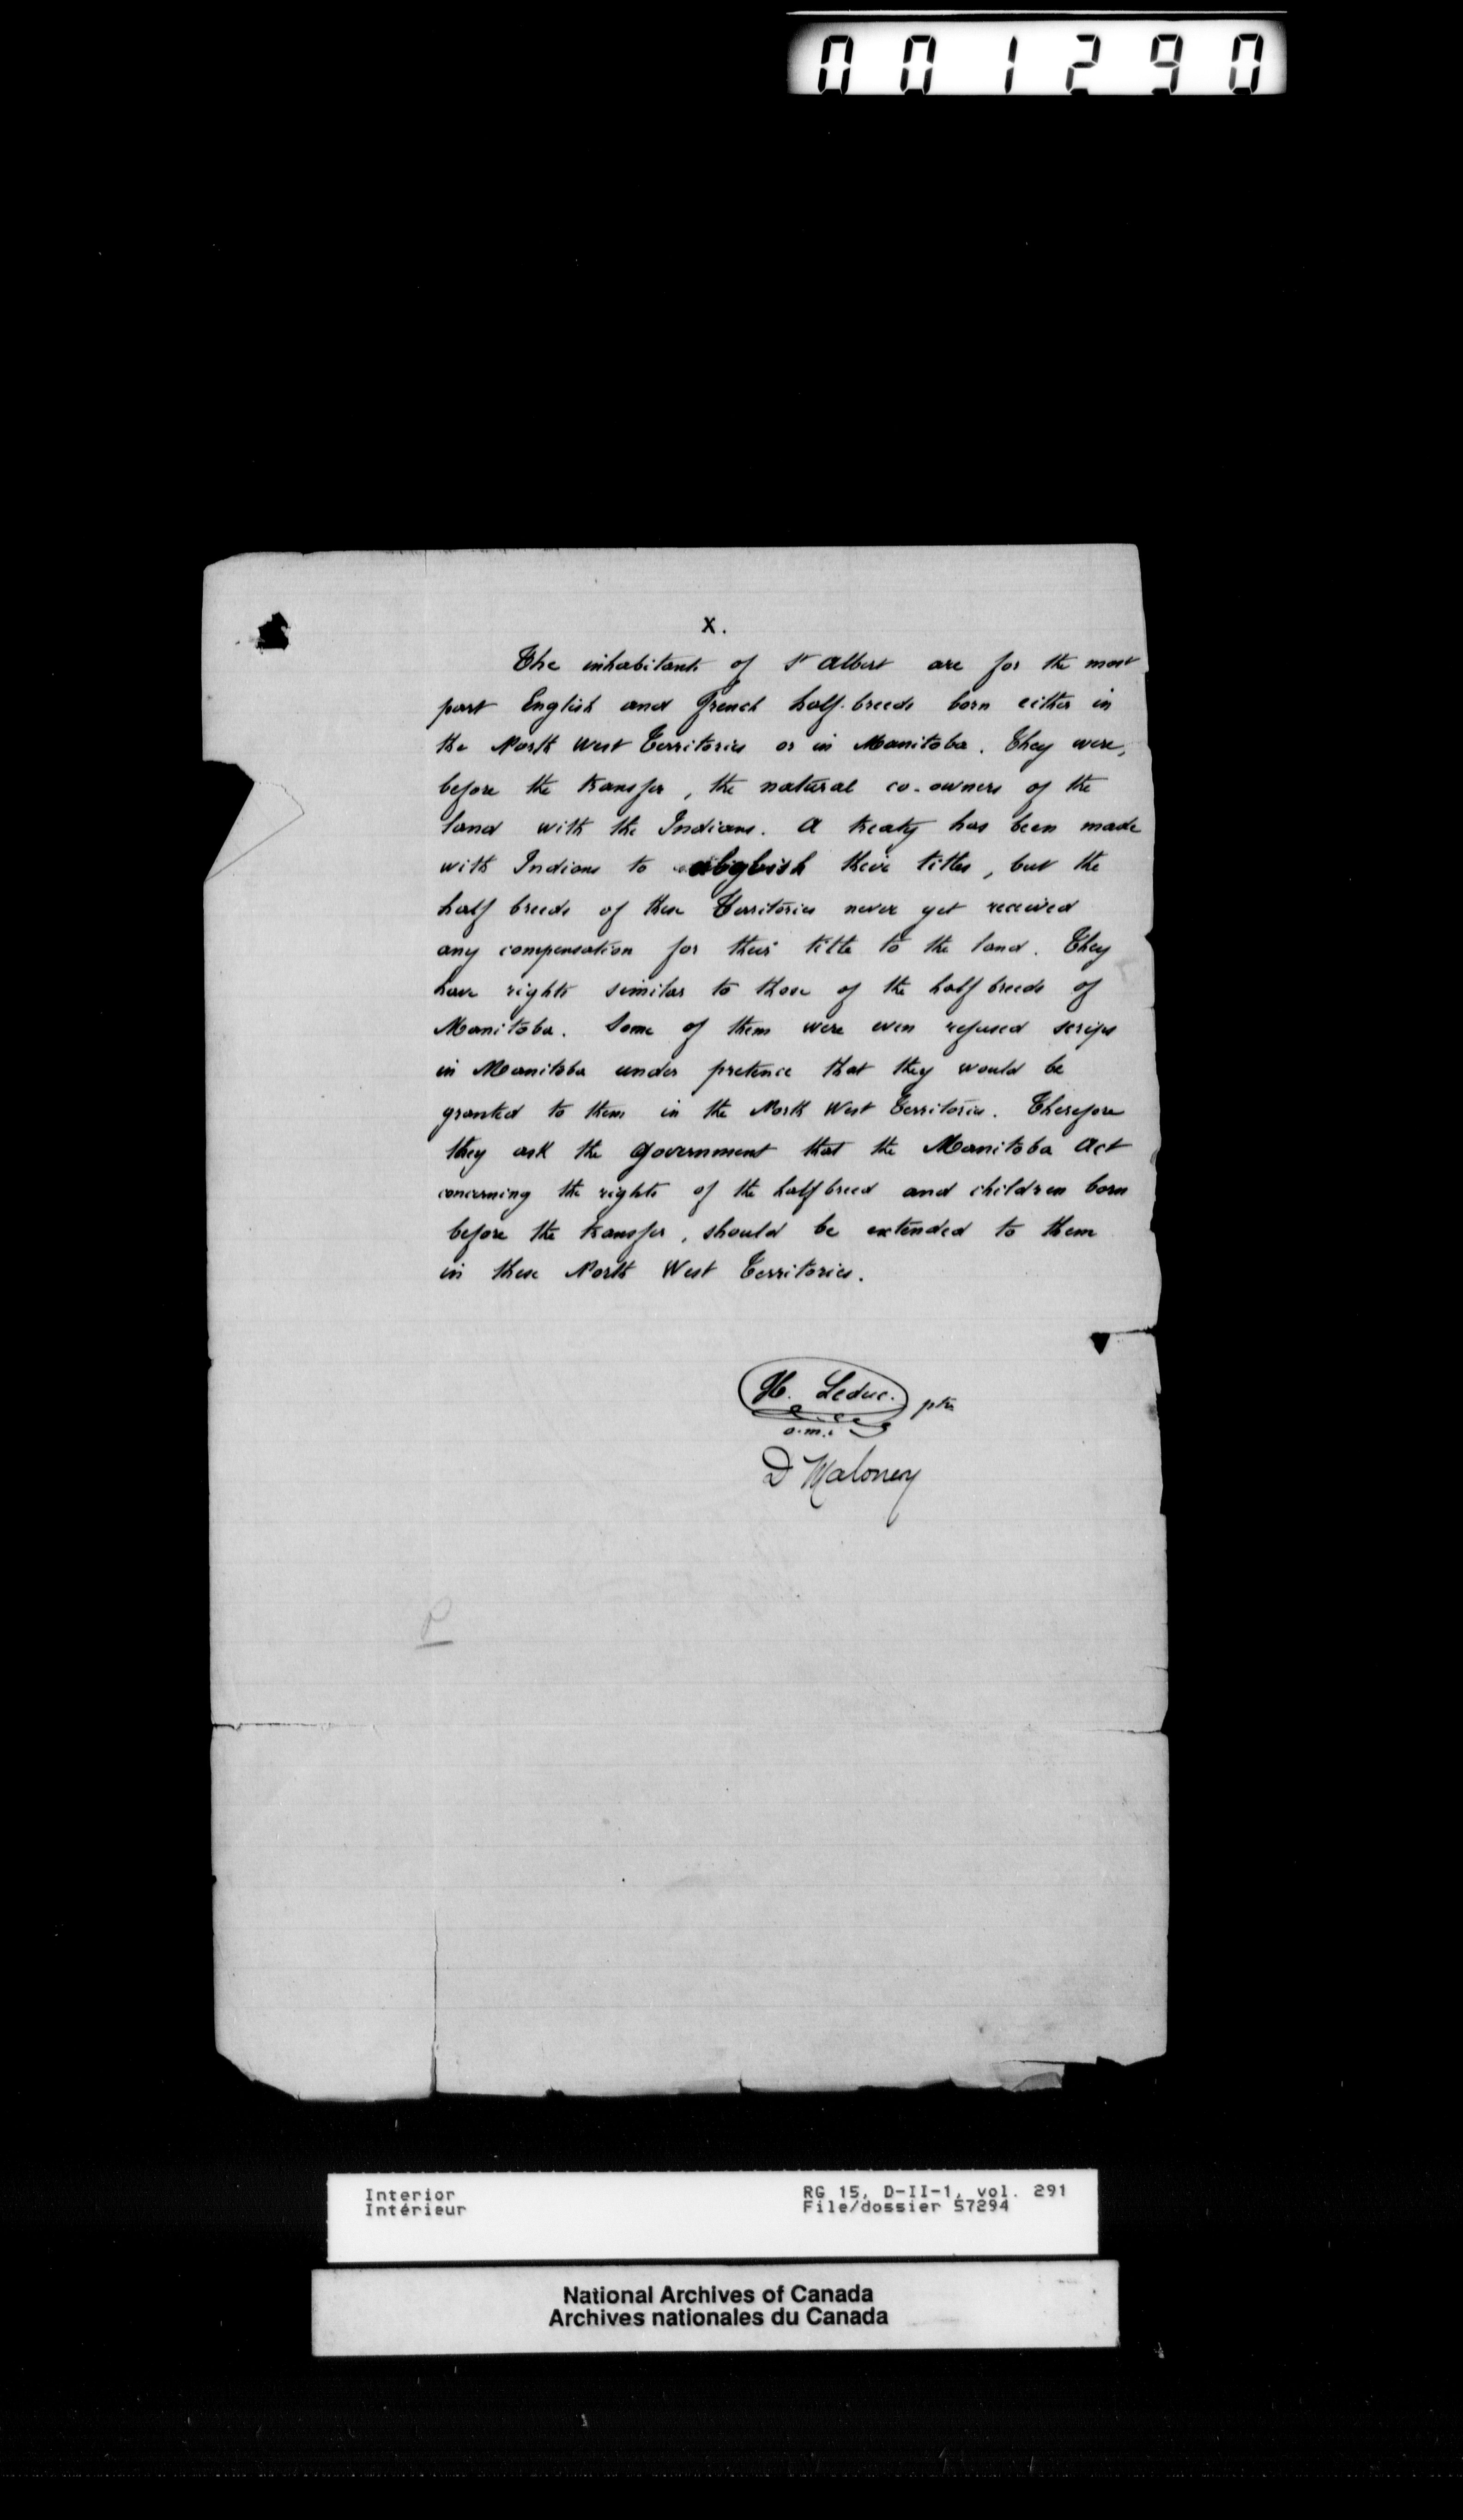 001290
X.
The inhabitants of St Albert are for the most
part English and French half-breeds born either in
the North West Territories or in Manitoba. They were,
before the transfer, the natural co-owners of the
land with the Indians. A treaty has been made
with Indians to their titles, but the
half breeds of these Territories never yet received
any compensation for their title to the land. They
have rights similar to those of the half breeds of
Manitoba. Some of them were even refused scrips
in Manitoba under pretence that they would be
granted to them in the North West Territories. Therefore
they ask the Government that the Manitoba Act
concerning the rights of the half breed and children born
before the transfer, should be extended to them
in these North West Territories.
H. Leduc. ptre
o.m.i
D Maloney
P
Interior
Intérieur
RG 15, D-II-1, vol. 291
File/dossier 57294
National Archives of Canada
Archives nationales du Canada